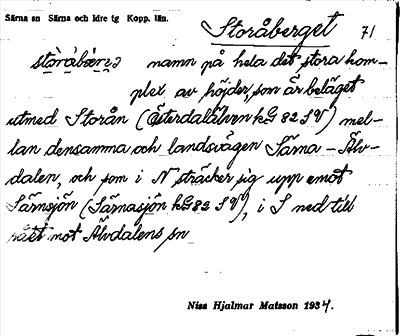 Särna sn Särna och Idre tg Kopp. län.
Storåberget 71
namn på hela det stora kom-
plex av höjder, som är beläget
utmed Storån (Österdalälven kG 82 SV) mel-
lan densamma och landsvägen Särna - Älv-
dalen, och som i N sträcker sig upp emot
Särnsjön (Särnasjön kG 82 SV), i S ned till
mot Älvdalens sn
Niss Hjalmar Matsson 1934.